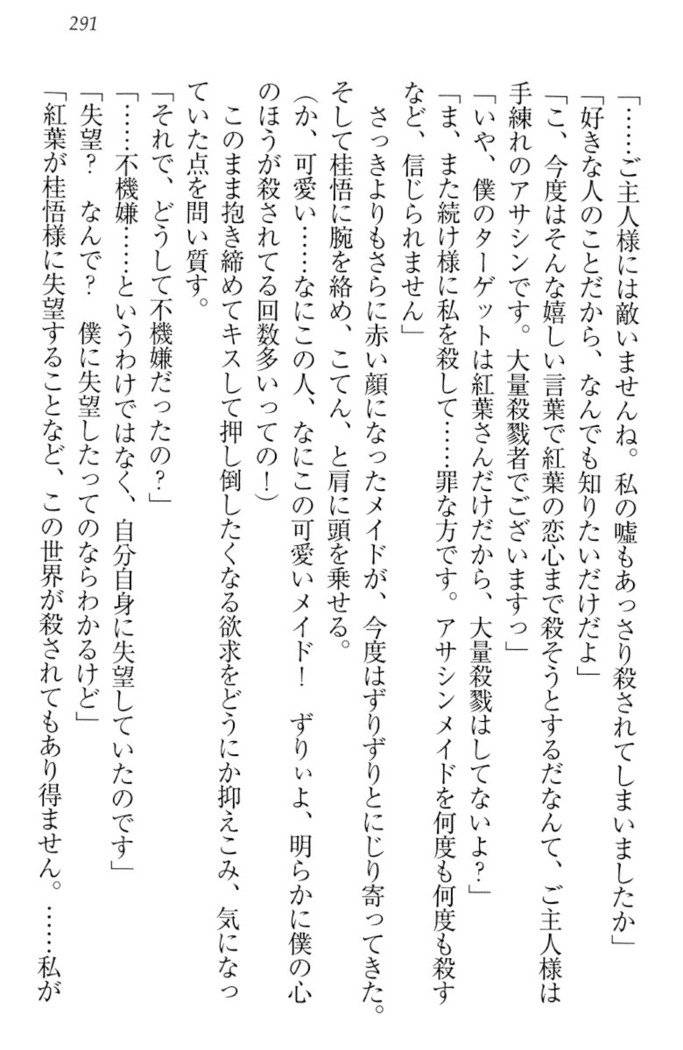 291
「……ご主人様には敵いませんね。私の嘘もあっさり殺されてしまいましたか」
「好きな人のことだから、なんでも知りたいだけだよ」
「こ、今度はそんな嬉しい言葉で紅葉の恋心まで殺そうとするだなんて、ご主人様は
手練れのアサシンです。大量殺戮者でございますっ」
「いや、僕のターゲットは紅葉さんだけだから、大量殺戮はしてないよ?」
「ま、また続け様に私を殺して……罪な方です。アサシンメイドを何度も何度も殺す
など、信じられません」
　さっきよりもさらに赤い顔になったメイドが、今度はずりずりとにじり寄ってきた。
そして桂悟に腕を絡め、こてん、と肩に頭を乗せる。
(か、可愛い……なにこの人、なにこの可愛いメイド!　ずりぃよ、明らかに僕の心
のほうが殺されてる回数多いっての!)
　このまま抱き締めてキスして押し倒したくなる欲求をどうにか抑えこみ、気になっ
ていた点を問い質す。
「それで、どうして不機嫌だったの?」
「……不機嫌……というわけではなく、自分自身に失望していたのです」
「失望?　なんで?　僕に失望したってのならわかるけど」
「紅葉が桂悟様に失望することなど、この世界が殺されてもあり得ません。……私が